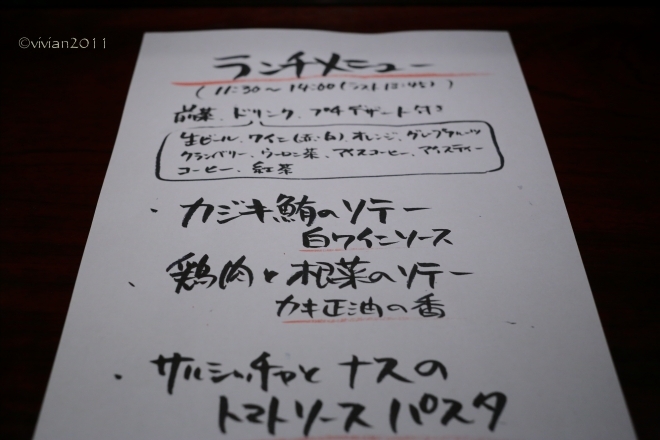 ©vivian2011
ランチメニュー
(11:30～14:00(ラスト13:45))
前菜、ドリンク、プチデザート付き
生ビール、ワイン(赤・白)、オレンジ、グレープフルーツ
クランベリー、ウーロン茶、アイスコーヒー、アイスティー
コーヒー、紅茶
・カジキ鮪のソテー
白ワインソース
・鶏肉と根菜のソテー
カキ正油の香
・サルシッチャとナスの
トマトソースパスタ